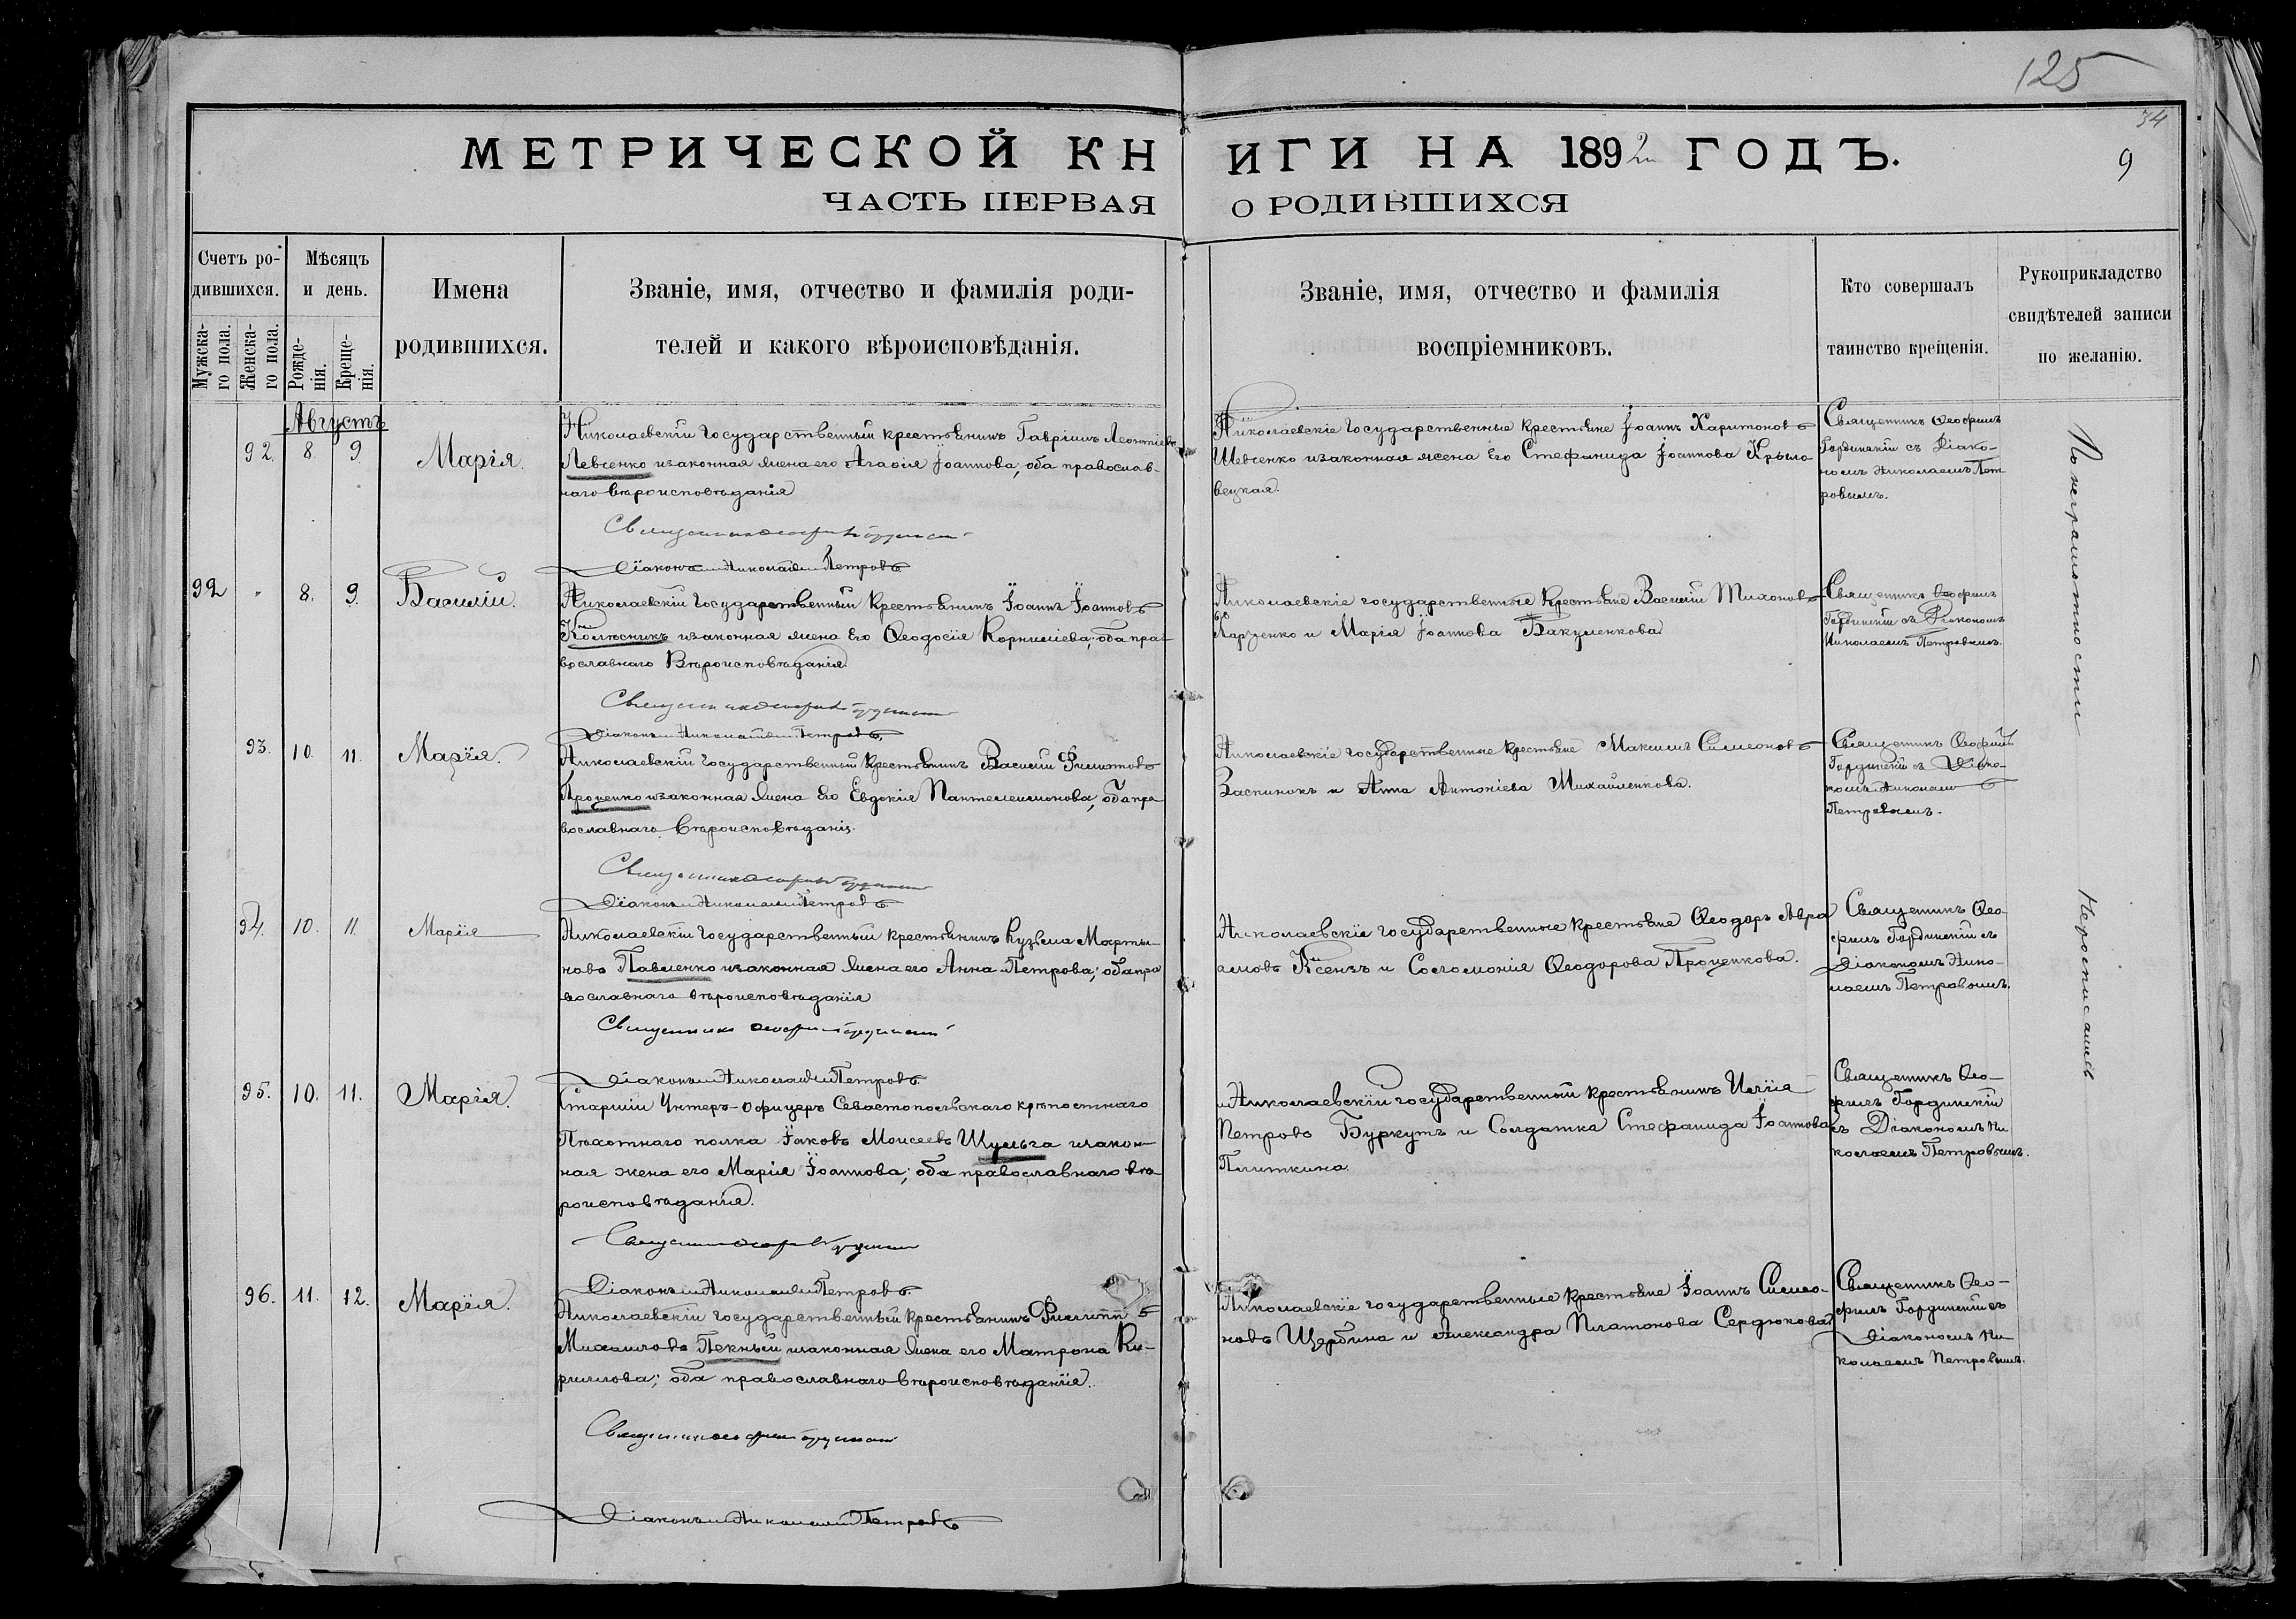 125
34
МЕТРИЧЕСКОЙ КНИГИ НА 1892 ГОДЪ.
9
ЧАСТЬ ПЕРВАЯ О РОДИВШИХСЯ
Счетъ ро-
дившихся.
Мужска-
го пола.
Женска-
го пола.
Мѣсяцъ
и день.
Рожде-
нія.
Креще-
нія.
Имена
родившихся.
Званіе, имя, отчество и фамилія роди-
телей и какого вѣроисповѣданія.
Званіе, имя, отчество и фамилія
воспріемниковъ.
Кто совершалъ
таинство крещенія.
Рукоприкладство
свидѣтелей записи
по желанію.
Августъ
92. 8. 9. Марія.
Николаевскій государственный крестьянинъ Гавріилъ Леонтіевъ
Левченко и законная жена его Агафія Іоаннова, оба православ-
наго вѣроисповѣданія
Священникъ Ѳеофилъ
Діаконъ Николай Петровъ
Николаевскіе государственные крестьяне Іоаннъ Харитоновъ
Шевченко и законная жена его Стефанида Іоаннова Крыло-
вецкая.
Священникъ Ѳеофилъ
Гординскій съ Діако-
номъ Николаемъ Пет
ровымъ.
92 " 8. 9. Василій.
Николаевскій государственный крестьянинъ Іоаннъ Іоанновъ
Колѣсникъ и законная жена его Ѳеодосія Корниліева, оба пра-
вославнаго вѣроисповѣданія.
Священникъ Ѳеофилъ
Діаконъ Николай Петровъ
Николаевскіе государственные крестьяне Василій Тихоновъ
Харченко и Марія Іоаннова Бакуменкова
Священникъ Ѳеофилъ
Гординскій съ Діакономъ
Николаемъ Петровымъ.
93. 10. 11. Марія.
Николаевскій государственный крестьянинъ Василій Филиповъ
Проценко и законная жена его Евдокія Пантелеимонова, оба пра
вославнаго вѣроисповѣданія.
Священникъ Ѳеофилъ
Діаконъ Николай Петровъ
Николаевскіе государственные крестьяне Максимъ Симеоновъ
Заспинокъ и Анна Антоніева Михайленкова.
Священникъ Ѳеофилъ
Гординскій съ Діако-
номъ Николаемъ
Петровымъ.
94. 10. 11. Марія
Николаевскій государственный крестьянинъ Кузьма Марты-
новъ Павленко и законная жена его Анна Петрова; оба пра
вославнаго вѣроисповѣданія
Священникъ Ѳеофилъ
Діаконъ Николай Петровъ
Николаевскіе государственные крестьяне Ѳеодоръ Авра
амовъ Ксензъ и Соломонія Ѳеодорова Проценкова.
Священникъ Ѳео-
филъ Гординскій съ
Діакономъ Нико-
лаемъ Петровымъ.
95. 10. 11. Марія.
Старшій Унтеръ-Офицеръ Севастопольскаго крѣпостнаго
Пѣхотнаго полка Іаковъ Моисеевъ Шульга и закон-
ная жена его Марія Іоаннова; оба православнаго вѣ-
роисповѣданія.
Священникъ Ѳеофилъ
Діаконъ Николай Петровъ
Николаевскій государственный крестьянинъ Илія
Петровъ Буркутъ и Солдатка Стефанида Іоаннова
Плиткина.
Священникъ Ѳео-
филъ Гординскій
съ Діакономъ Ни
колаемъ Петровымъ.
96. 11. 12. Марія.
Николаевскій государственный крестьянинъ Филиппъ
Михаиловъ Пекный и законная жена его Матрона Ки-
риллова; оба православнаго вѣроисповѣданія.
Священникъ Ѳеофилъ
Діаконъ Николай Петровъ
Николаевскіе государственные крестьяне Іоаннъ Симео-
новъ Щербина и Александра Платонова Сердюкова
Священникъ Ѳео-
филъ Гординскій съ
Діакономъ Ни
колаемъ Петровымъ.
По неграмотности
Неросписались